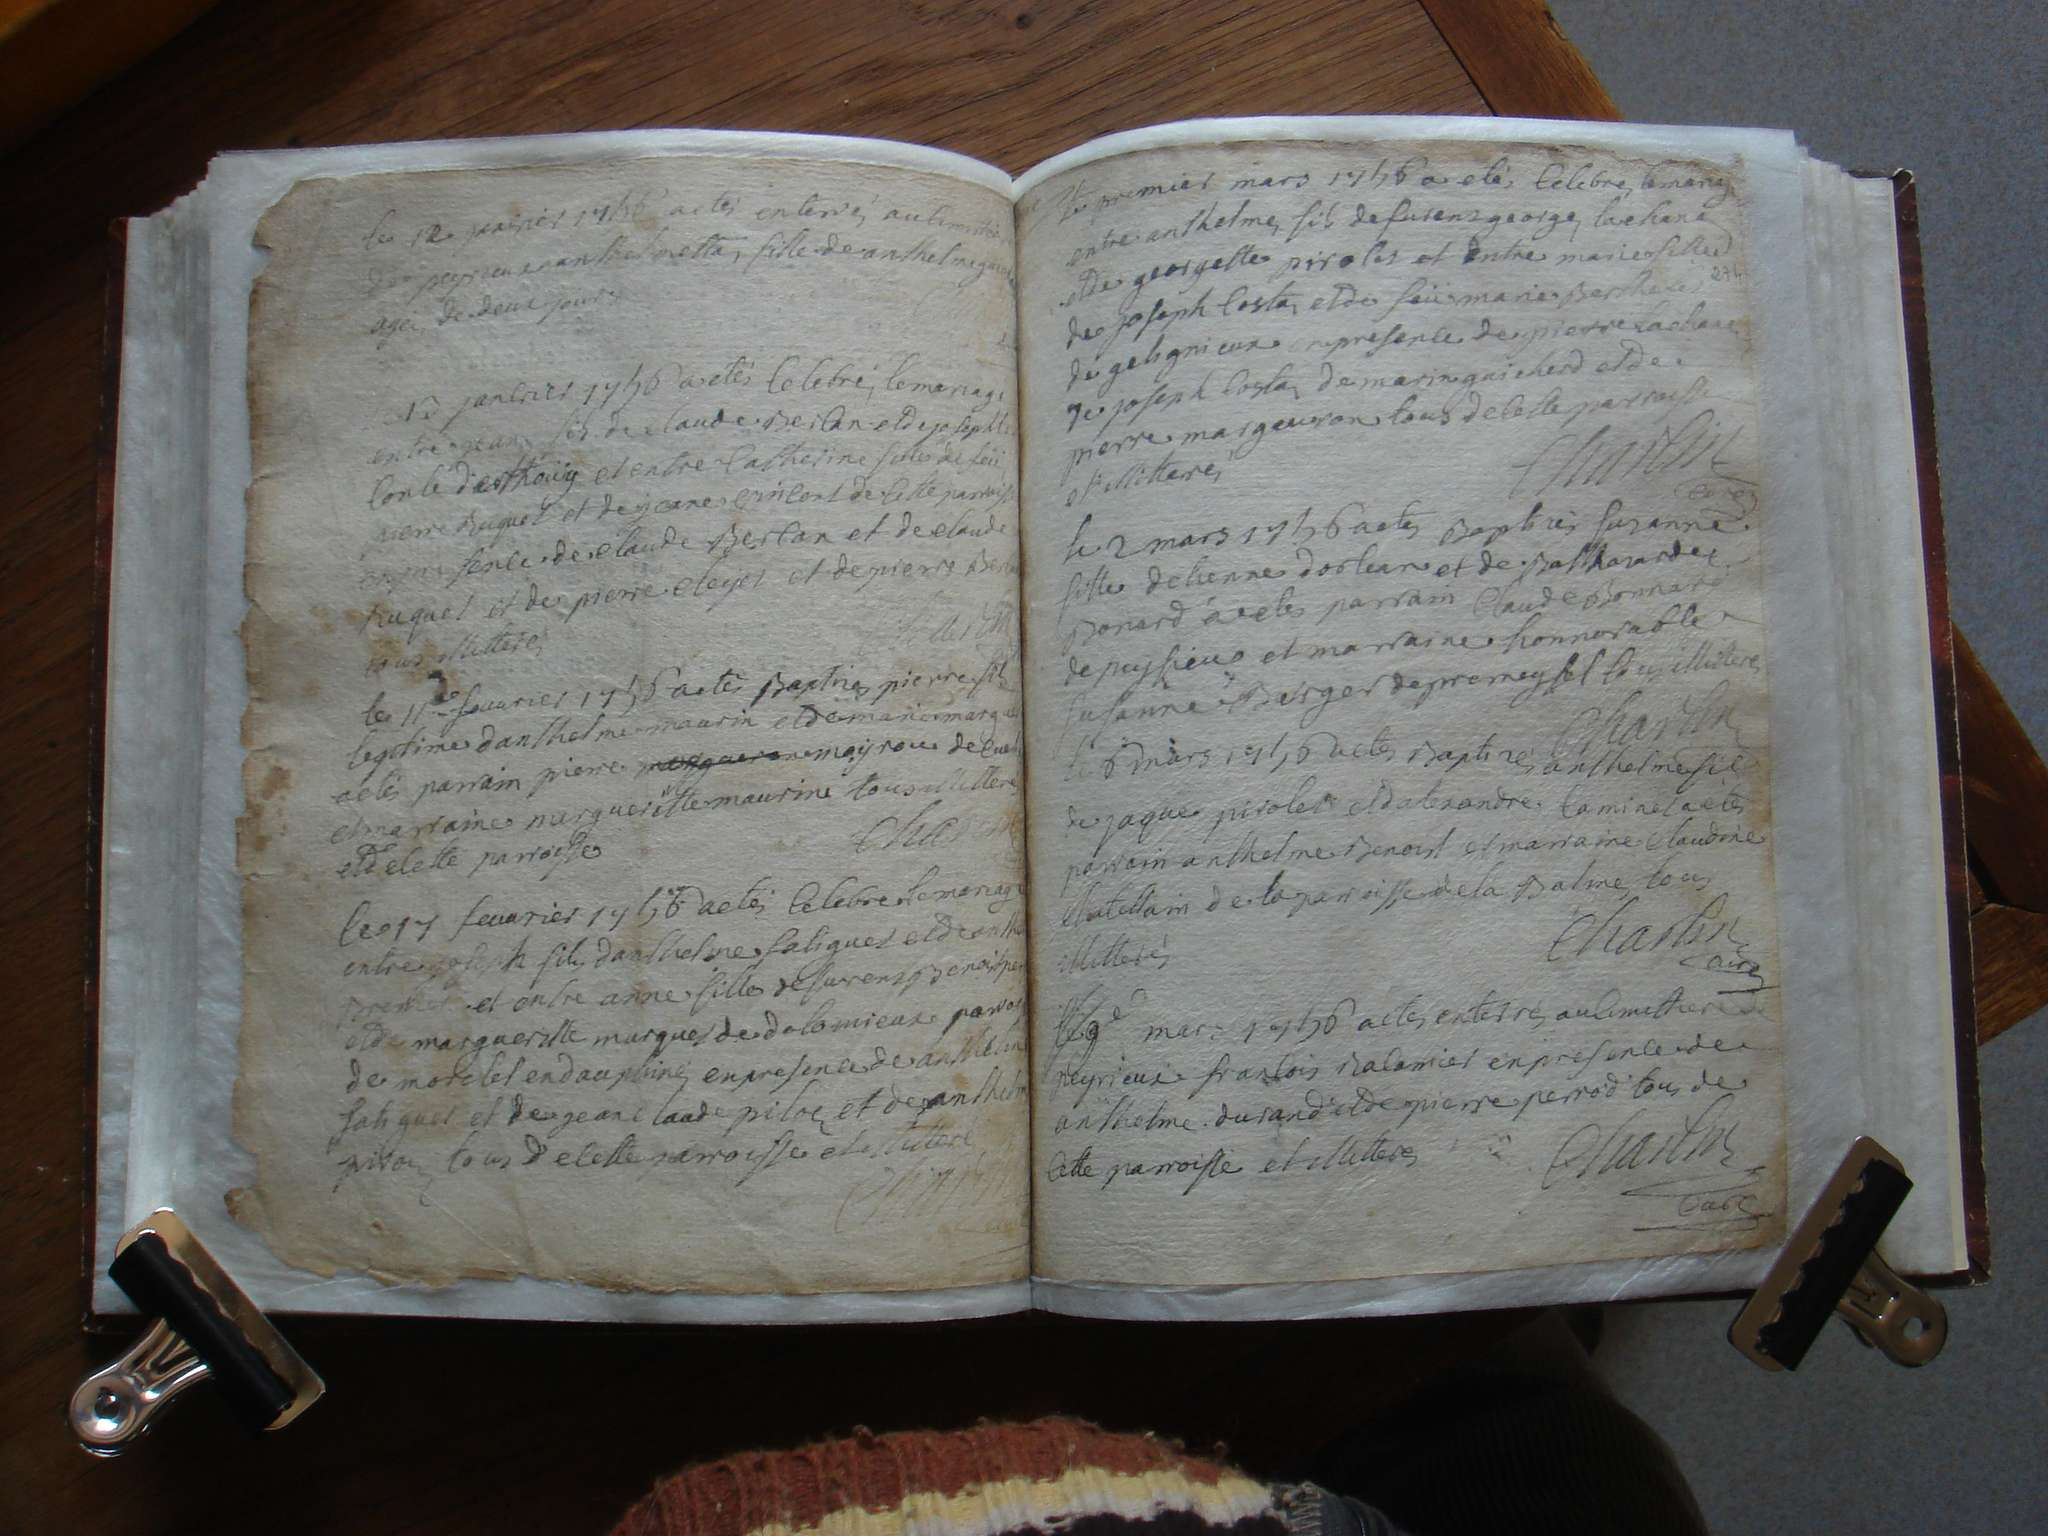 le 12 janvier 1756 a eté enterré au cimetiere
de peyrieux anthelmetta fille de anthelme
agée de deux jours
13 janvier 1756 a etés celebré le mariage
entre jean fils de claude Berlan et de josephte
et entre Catherine fille de feü
pierre Ruquet et de jeanne vincent de cette parroisse
en presence de claude Berlan et de claude
Ruquet et de pierre cleyet et de pierre Berlan
tous illitteré
le 11e feuvrier 1756 a etés Baptisés pierre fils
legitime danthelme maurin et de marie marguer
a etés parrain pierre margueron meyrou de
et marraine margueritte maurine tous illitteré
et de cette parroisse
Charlin
le 17 feuvrier 1756 a etés celebré le mariage
entre joseph fils danthelme faliguet et de anth
et entre anne fille de furens Benoit
et de marguerite marquet de dolomieux parrois
de moretel en dauphiné en presence de anthelme
faliguet et de jean claude piroz et de anthelm
piroz tous de cette parroisse et illitteré
Charlin
le premier mars 1756 a etés celebré le mariage
entre anthelme fils de furens george lachana
et de georgette pirolet et entre marie fille
274
de joseph Costa et de feüe marie Berthet
de gelignieux en presence de pierre lachana
de joseph Costa de marin guicherd et de
pierre margeuron tous de cette parroisse
et illitteré
Charlin
Curé
le 2 mars 1756 a etés Baptisés Suzanne
fille detienne dorlean et de Balthazarde
Bonard a etés parrain Claude Bonnard
de pugieu et marraine honnorable
Susanne Berger de premeysel tous illitteré
Charlin
le 6 mars 1756 a etés Baptisés anthelme fils
de jaque pirolet et dalexandre Caminet a etés
parrain anthelme Benoist et marraine Claudine
Chatellain de la paroisse de la Balme tous
illitteré
Charlin
Curé
le 9e mars 1756 a etés enterré au cimetiere de
peyrieux francois Ralamier en presence de
anthelme durand et de pierre perrod tous de
cette parroisse et illitteré
Charlin
Curé